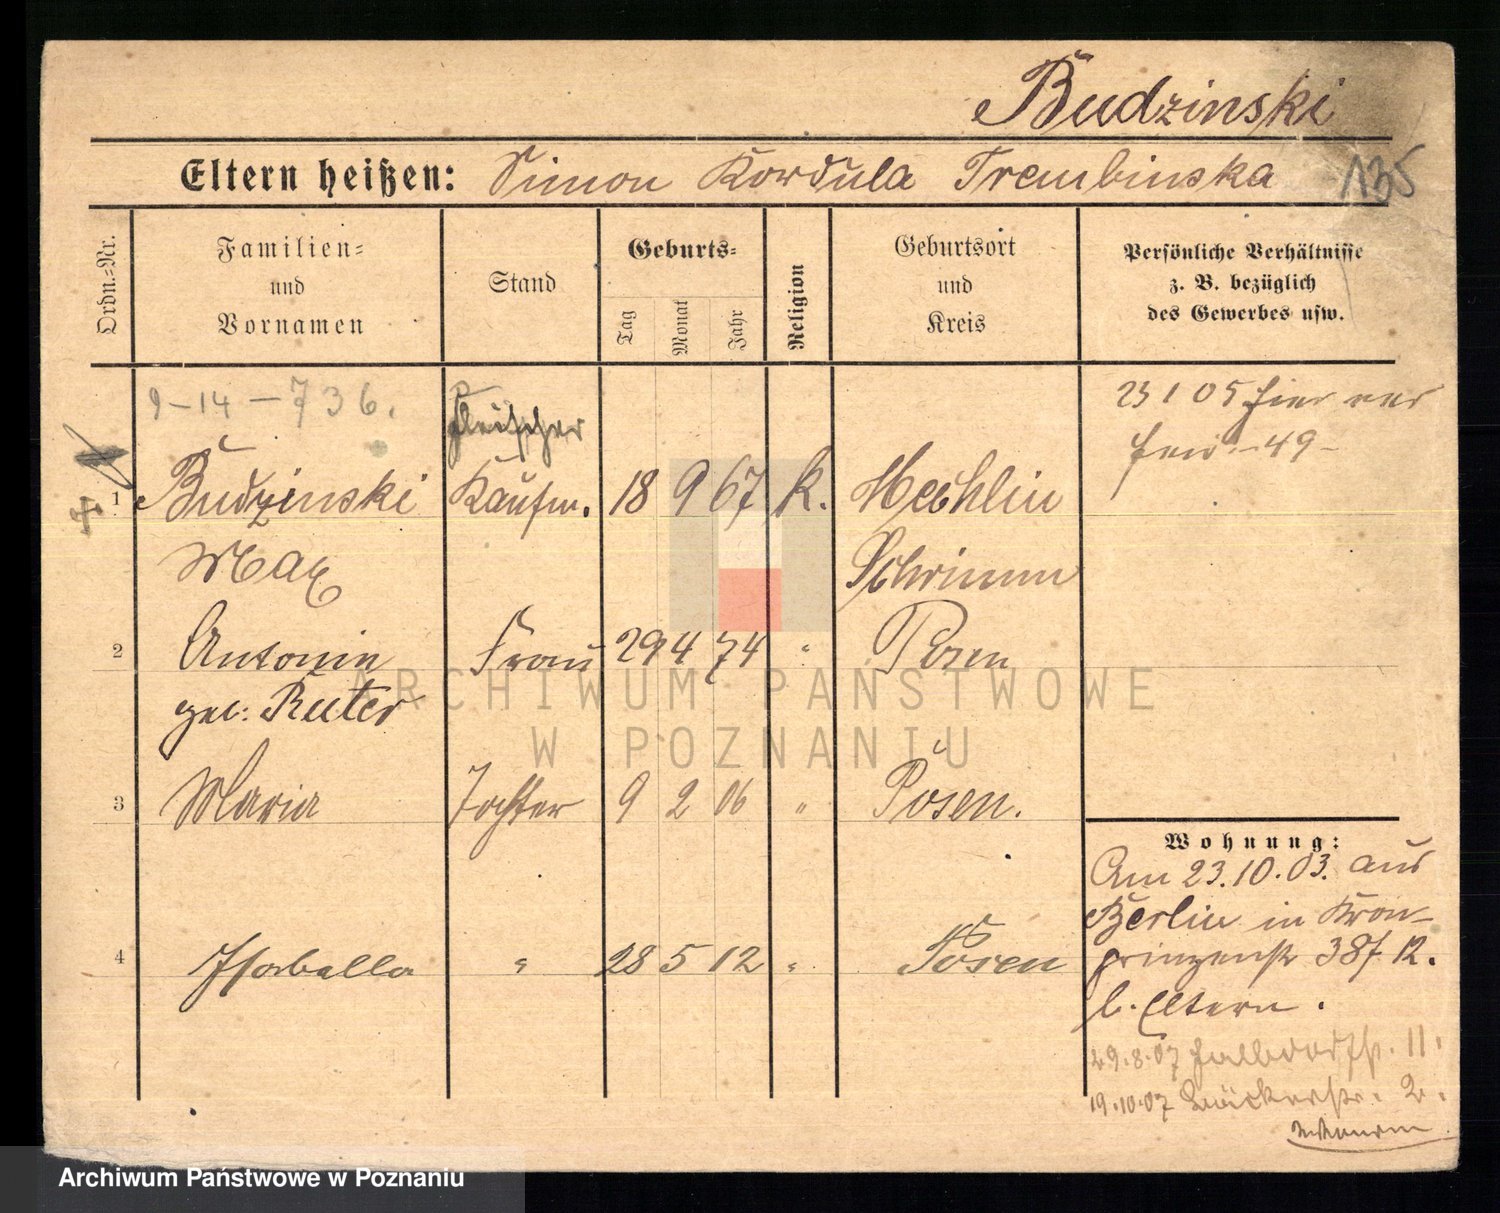 Budzinski
Eltern heißen: Simon Kordula Trembinska 135
Ordn.=Nr.
Familien=
und
Vornamen
Stand
Geburts=
Tag
Monat
Jahr
Religion
Geburtsort
und
Kreis
Persönliche Verhältnisse
z. B. bezüglich
des Gewerbes usw.
9-14-736.
Fleischer
23 1 05 hier
49-
1 Budzinski Kaufm. 18 9 67 K. Mechlin
Max Schrimm
2 Antonin Frau 29 4 74 " Posen
geb: Reiter
3 Maria Tochter 9 2 06 " Posen.
4 Isabella " 28 5 12 " Posen
Wohnung:
Am 23.10.03. aus
Berlin in Kron-
prinzenstr 38 f. 12.
b. Eltern.
29.8.07 11.
19.10.07 Bäckerstr. 2.
ARCHIWUM PAŃSTWOWE
W POZNANIU
Archiwum Państwowe w Poznaniu